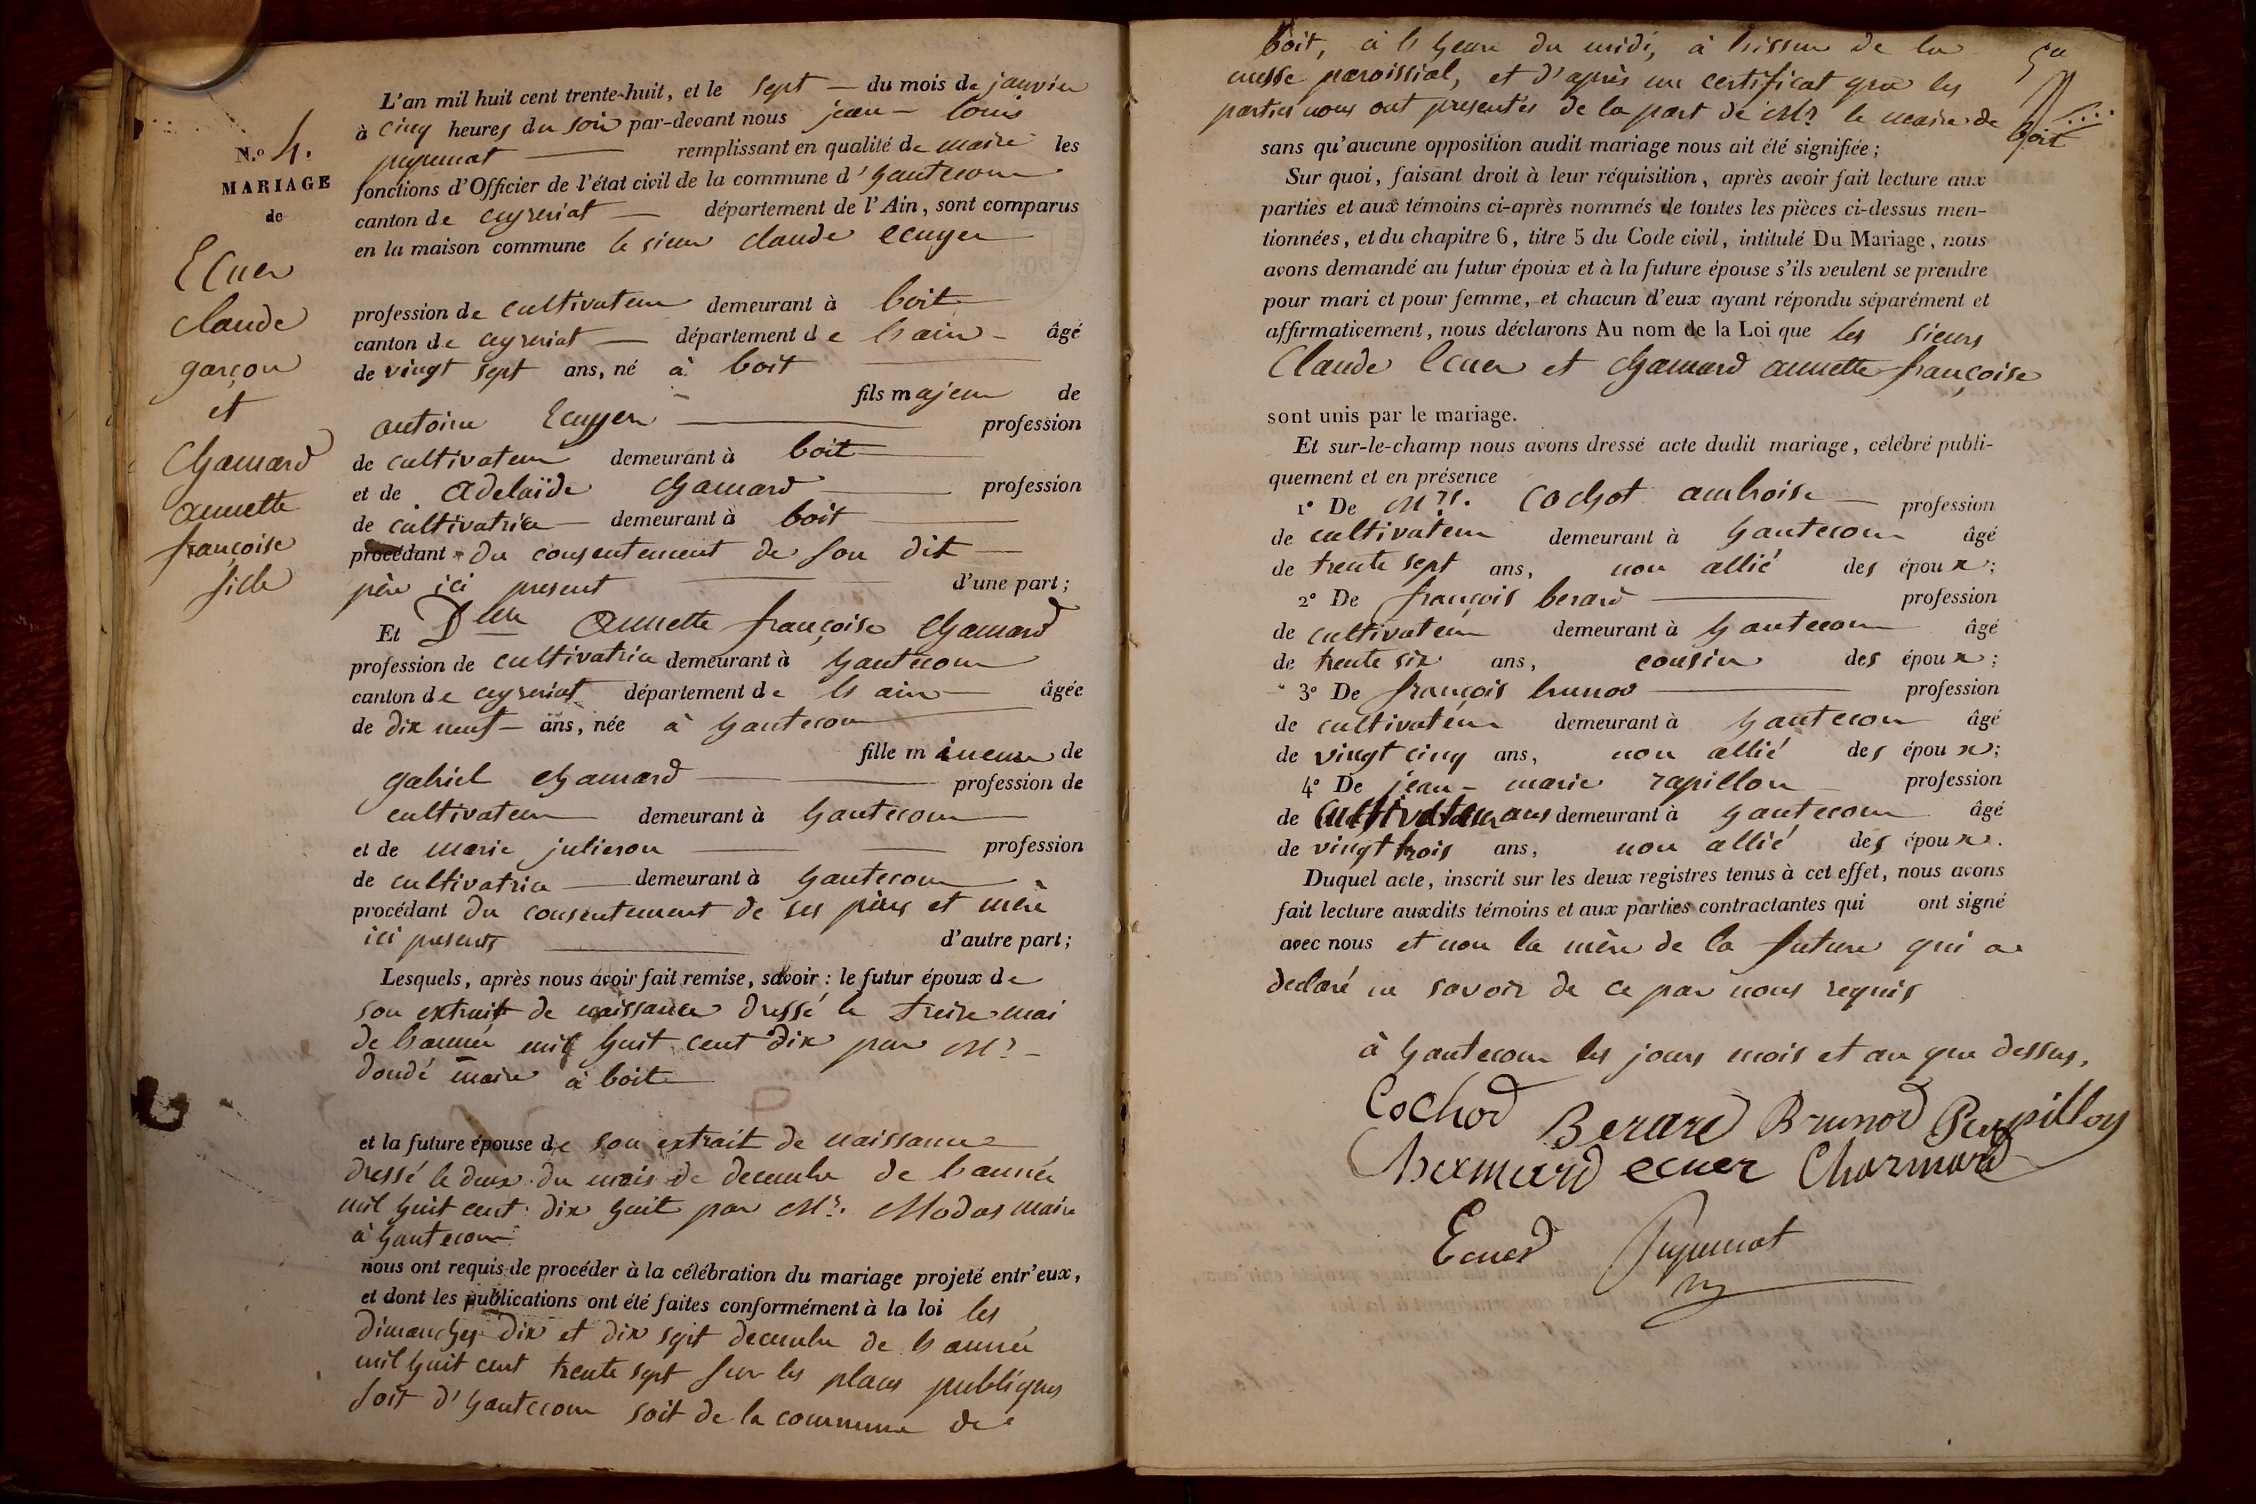 L'an mil huit cent trente-huit, et le sept — du mois de janvier
à cinq heures du soir par-devant nous jean-louis
puyumat — remplissant en qualité de maire les
N.º 4.
fonctions d'Officier de l'état civil de la commune d'hautecour
MARIAGE
canton de ceyzeriat — département de l'Ain, sont comparus
de
en la maison commune le sieur claude ecuyer
Ecuer
claude
garçon
et
Chamard
annette
françoise
fille
profession de cultivateur demeurant à boit
canton de ceyzeriat — département de l'ain — âgé
de vingt sept ans, né à boit
fils majeur de
antoine Ecuyer — profession
de cultivateur demeurant à boit
et de adelaïde chamard — profession
de cultivatrice — demeurant à boit
procédant du consentement de son dit —
père ici present — d'une part;
Et Dlle annette françoise chamard
profession de cultivatrice demeurant à hautecour
canton de ceyzeriat département de l'ain — âgée
de dix neuf — ans, née à hautecour
fille mineure de
gabriel chamard — profession de
cultivateur demeurant à hautecour
et de marie julieron — profession
de cultivatrice — demeurant à hautecour
procédant du consentement de ses père et mère
ici presents — d'autre part;
Lesquels, après nous avoir fait remise, savoir : le futur époux de
son extrait de naissance dressé le treize mai
de l'année mil huit cent dix par Mr —
doudé maire à boit
et la future épouse de son extrait de naissance
dressé le deux du mois de decembre de l'année
mil huit cent dix huit par Mr. Modas maire
à hautecour
nous ont requis de procéder à la célébration du mariage projeté entr'eux,
et dont les publications ont été faites conformément à la loi les
dimanches dix et dix sept decembre de l'année
mil huit cent trente sept sur les places publiques
soit d'hautecour soit de la commune de
boit, à l'heure du midi, à l'issue de la
messe paroissial, et d'après un certificat que les
parties nous ont presentés de la part de Mr le maire de
boit
sans qu'aucune opposition audit mariage nous ait été signifiée;
Sur quoi, faisant droit à leur réquisition, après avoir fait lecture aux
parties et aux témoins ci-après nommés de toutes les pièces ci-dessus men-
tionnées, et du chapitre 6, titre 5 du Code civil, intitulé Du Mariage, nous
avons demandé au futur époux et à la future épouse s'ils veulent se prendre
pour mari et pour femme, et chacun d'eux ayant répondu séparément et
affirmativement, nous déclarons Au nom de la Loi que les sieurs
Claude Ecuer et chamard annette françoise
sont unis par le mariage.
Et sur-le-champ nous avons dressé acte dudit mariage, célébré publi-
quement et en présence
1º De Mrs. Cochot ambroise — profession
de cultivateur demeurant à hautecour âgé
de trente sept ans, non allié des époux;
2º De françois berard — profession
de cultivateur demeurant à hautecour âgé
de trente six ans, cousin des époux;
3º De françois brunod — profession
de cultivateur demeurant à hautecour âgé
de vingt cinq ans, non allié des époux;
4º De jean-marie rapillon profession
de cultivateur demeurant à hautecour âgé
de vingt trois ans, non allié des époux.
Duquel acte, inscrit sur les deux registres tenus à cet effet, nous avons
fait lecture auxdits témoins et aux parties contractantes qui ont signé
avec nous et non la mère de la future qui a
declaré ne savoir de ce par nous requis
à hautecour les jours mois et an que dessus,
Cochod Berard Brunod
Chamard ecuer Charmard
Ecuer Puyumat